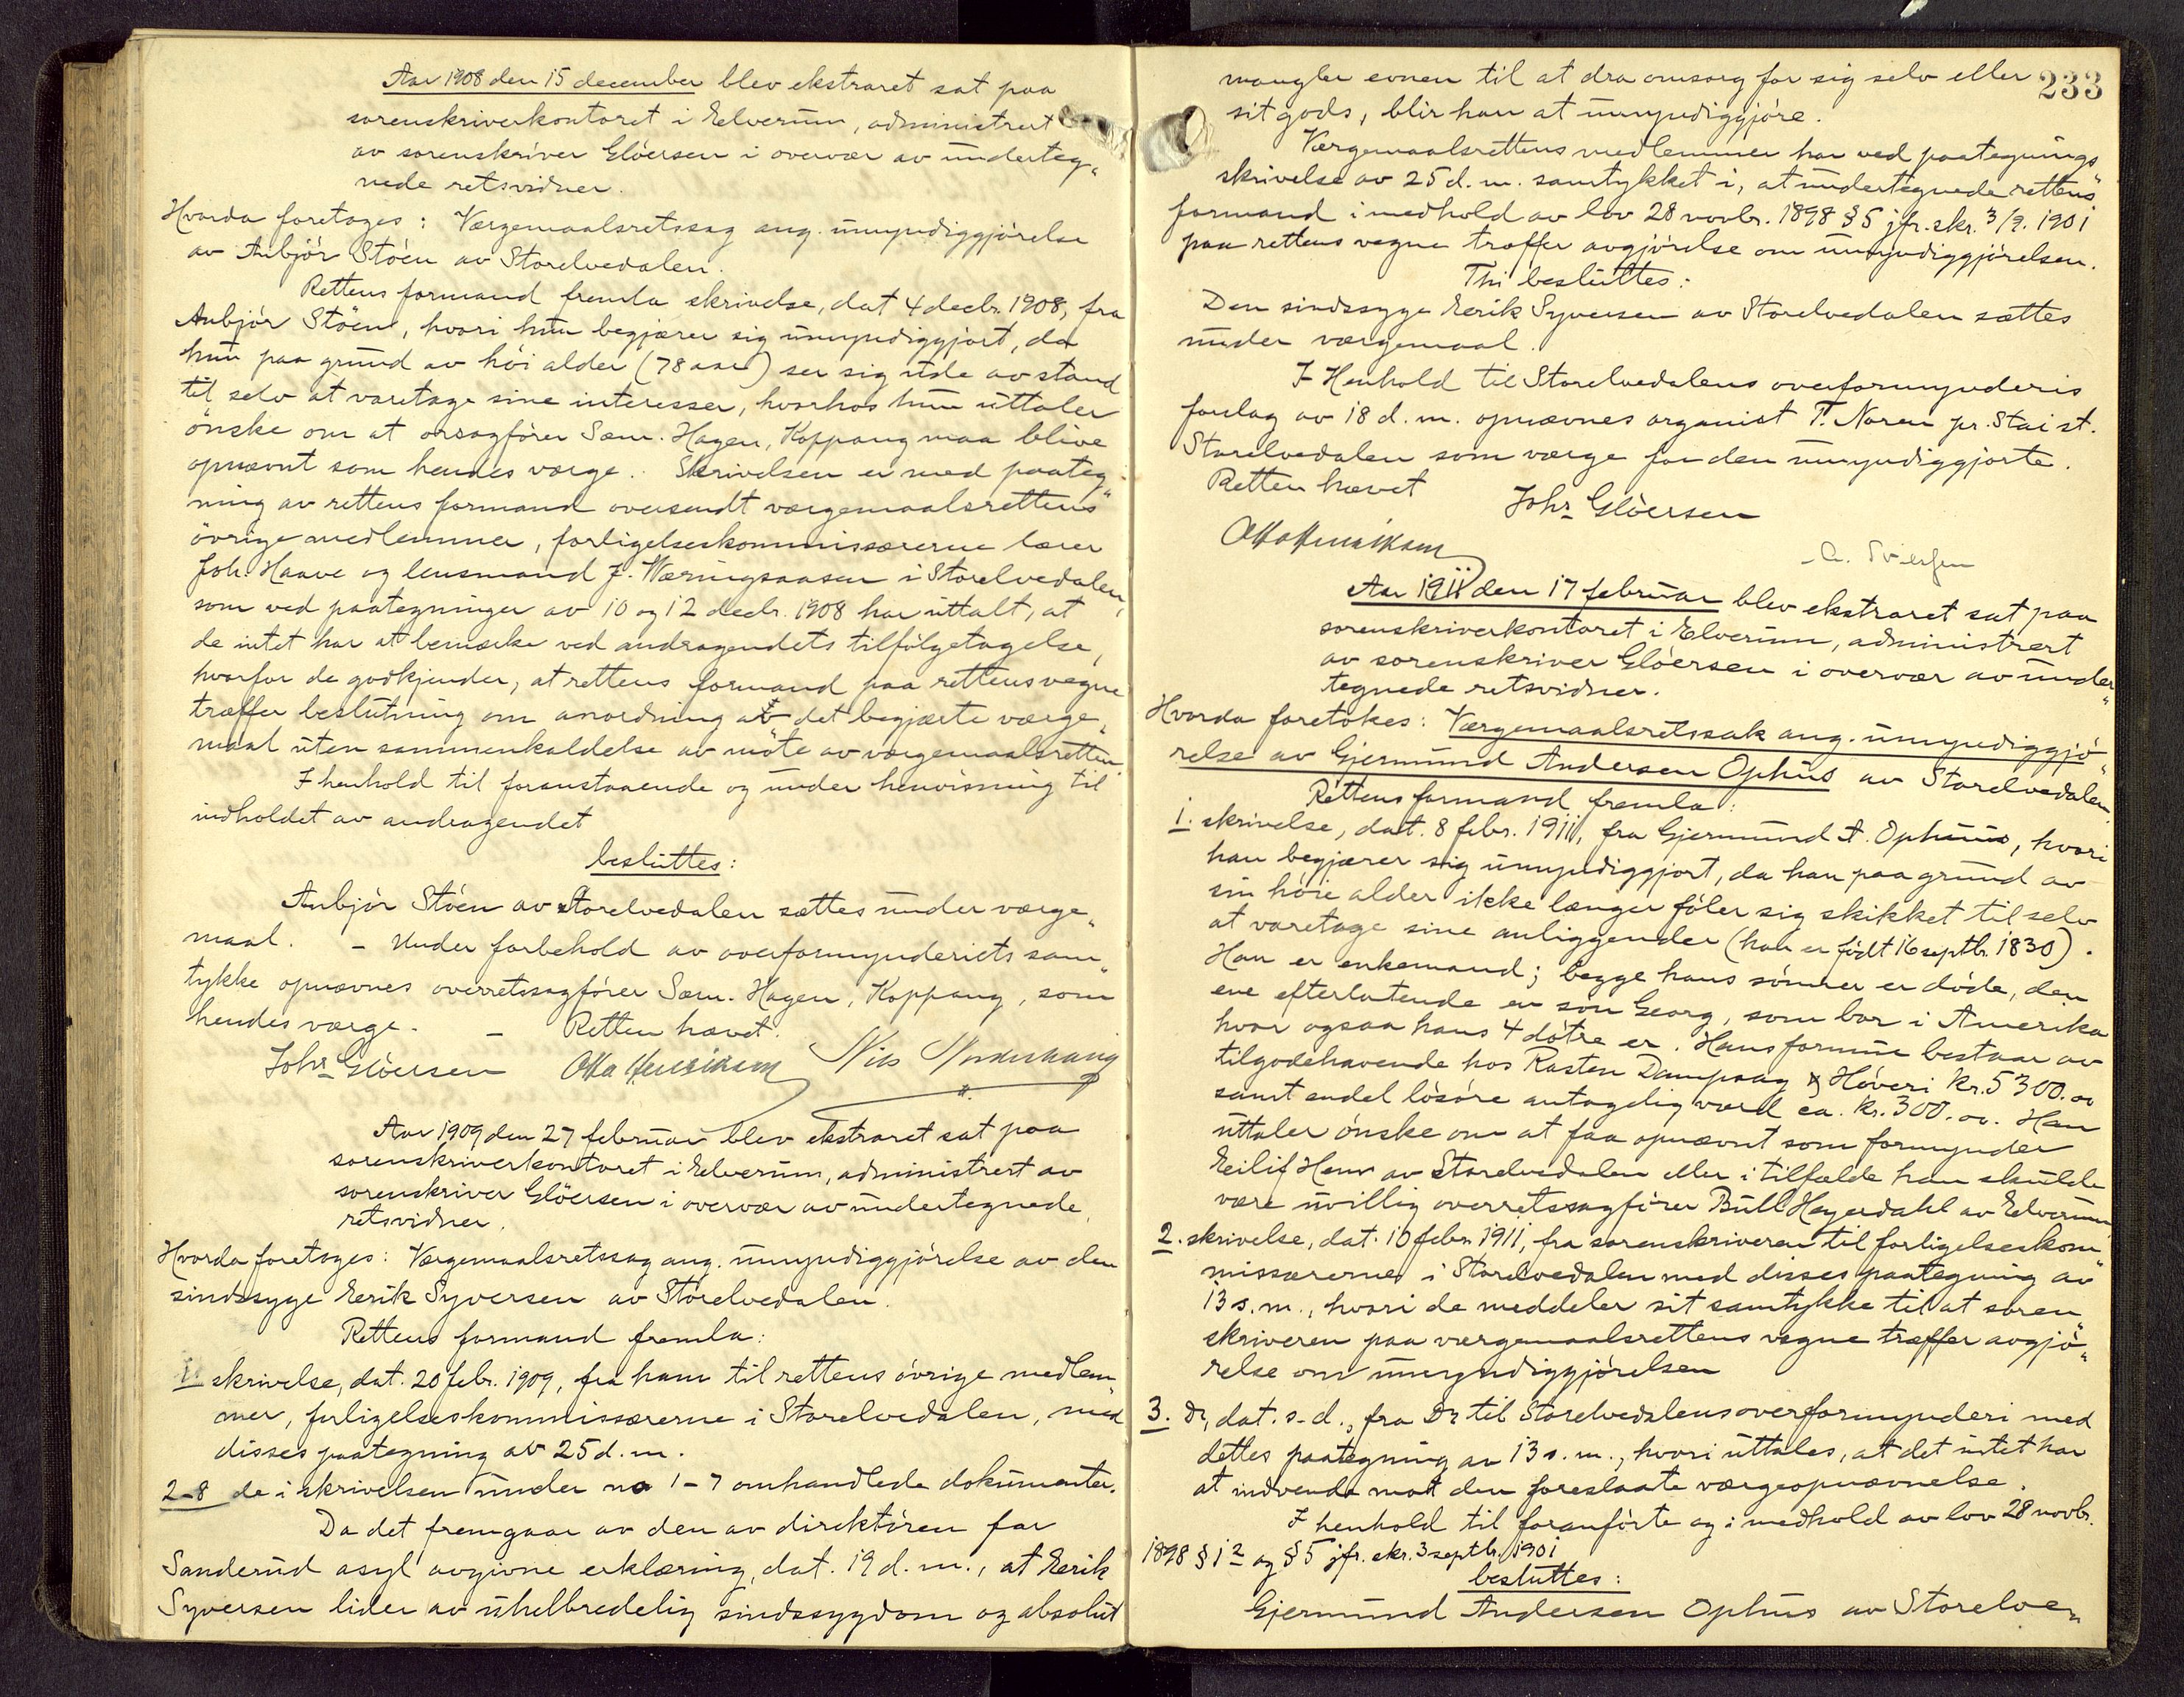 Aar 1908 den 15 december blev ekstraret sat paa
sorenskriverkontoret i Elverum, administrert
av sorenskriver Glöersen i overvær av underteg„
nede retsvidner.
Hvorda foretoges: Værgemaalsretssag ang. umyndiggjörelse
av Anbjör Stöen av Storelvedalen.
Rettens formand fremla skrivelse, dat 4 decbr. 1908, fra
Anbjör Stöen, hvori hun begjærer sig umyndiggjort, da
hun paa grund av höi alder (78 aar) ser sig ute av stand
til selv at varetage sine interesser, hvorhos hun uttaler
önske om at orsagförer Sam. Hagen, Koppang maa blive
opnævnt som hendes værge. Skrivelsen er med paateg„
ning av rettens formand oversendt værgemaalsrettens
övrige medlemmer, forligelseskommissærerne lærer
Joh. Haave og lensmand J. Væringsaasen i Storelvedalen,
som ved paategninger av 10 og 12 decbr. 1908 har uttalt, at
de intet har at bemærke ved andragendets tilfölgetagelse,
hvorfor de godkjender, at rettens formand paa rettens vegne
træffer beslutning om anordning av det begjærte værge„
maal uten sammenkaldelse av möte av værgemaalsretten.
I henhold til foranstaaende og under henvisning til
indholdet av andragendet
besluttes:
Anbjör Stöen av Storelvedalen sættes under værge„
maal. – Under forbehold av overformynderiets sam„
tykke opnævnes overretssagförer Sam. Hagen, Koppang, som
hendes værge. – Retten hævet.
Johs Glöersen Otto Henriksen Nils
Aar 1909 den 27 februar blev ekstraret sat paa
sorenskriverkontoret i Elverum, administrert av
sorenskriver Glöersen i overvær av undertegnede
retsvidner.
Hvorda foretoges: Værgemaalsretssag ang. umyndiggjörelse av den
sindssyge Eerik Syversen av Storelvedalen.
Rettens formand fremla:
1. skrivelse, dat. 20 febr. 1909, fra ham til rettens övrige medlem„
mer, forligelseskommissærerne i Storelvedalen, med
disses paategning av 25 d. m.
2-8 de i skrivelsen under no 1-7 omhandlede dokumenter.
Da det fremgaar av den av direktören for
Sanderud asyl avgivne erklæring, dat. 19 d. m., at Eerik
Syversen lider av uhelbredelig sindssygdom og absolut
233
mangler evnen til at dra omsorg for sig selv eller
sit gods, blir han at umyndiggjöre.
Værgemaalsrettens medlemmer har ved paategnings„
skrivelse av 25 d. m. samtykket i, at undertegnede rettens
formand i medhold av lov 28 novbr. 1898 § 5 jfr. skr. 3/9. 1901
paa rettens vegne træffer avgjörelse om umyndiggjörelsen.
Thi besluttes:
Den sindssyge Eerik Syversen av Storelvedalen sættes
under værgemaal.
I Henhold til Storelvedalens overformynderis
forslag av 18 d. m. opnævnes organist T. Noren pr. Stai st.
Storelvedalen som værge for den umyndiggjorte.
Retten hævet
Johs Glöersen
Otto Henriksen
Aar 1911 den 17 februar blev ekstraret sat paa
sorenskriverkontoret i Elverum, administrert
av sorenskriver Glöersen i overvær av under„
tegnede retsvidner.
Hvorda foretokes: Værgemaalsretssak ang. umyndiggjö„
relse av Gjermund Andersen Ophus av Storelvedalen.
Rettens formand fremla:
1. skrivelse, dat. 8 febr. 1911, fra Gjermund A. Ophus, hvori
han begjærer sig umyndiggjort, da han paa grund av
sin höie alder ikke længer föler sig skikket til selv
at varetage sine anliggender (han er födt 16 septbr. 1830).
Han er enkemand; begge hans sönner er döde, den
ene efterlatende en sön Georg, som bor i Amerika
hvor ogsaa hans 4 dötre er. Hans formue bestaar av
tilgodehavende hos Rasten Dampsag & Höveri kr. 5300.oo
samt endel lösöre antagelig værd ca. kr. 300.oo. Han
uttaler önske om at faa opnævnt som formynder
Eilif Hem av Storelvedalen eller i tilfælde han skulde
være uvillig overretssagförer Bull Heyerdahl av Elverum
2. skrivelse, dat. 10 febr. 1911, fra sorenskriveren til forligelseskom„
missærerne i Storelvedalen med disses paategning av
13 s. m., hvori de meddeler sit samtykke til at soren„
skriveren paa værgemaalsrettens vegne træffer avgjö„
relse om umyndiggjörelsen
3. Do, dat. s. d., fra Do til Storelvedalens overformynderi med
dettes paategning av 13 s. m., hvori uttales, at det intet har
at indvende mot den foreslaate værgeopnævnelse.
I henhold til foranförte og i medhold av lov 28 novbr.
1898 § 1 2 og § 5 jfr. skr. 3 septbr. 1901
besluttes:
Gjermund Andersen Ophus av Storelve„